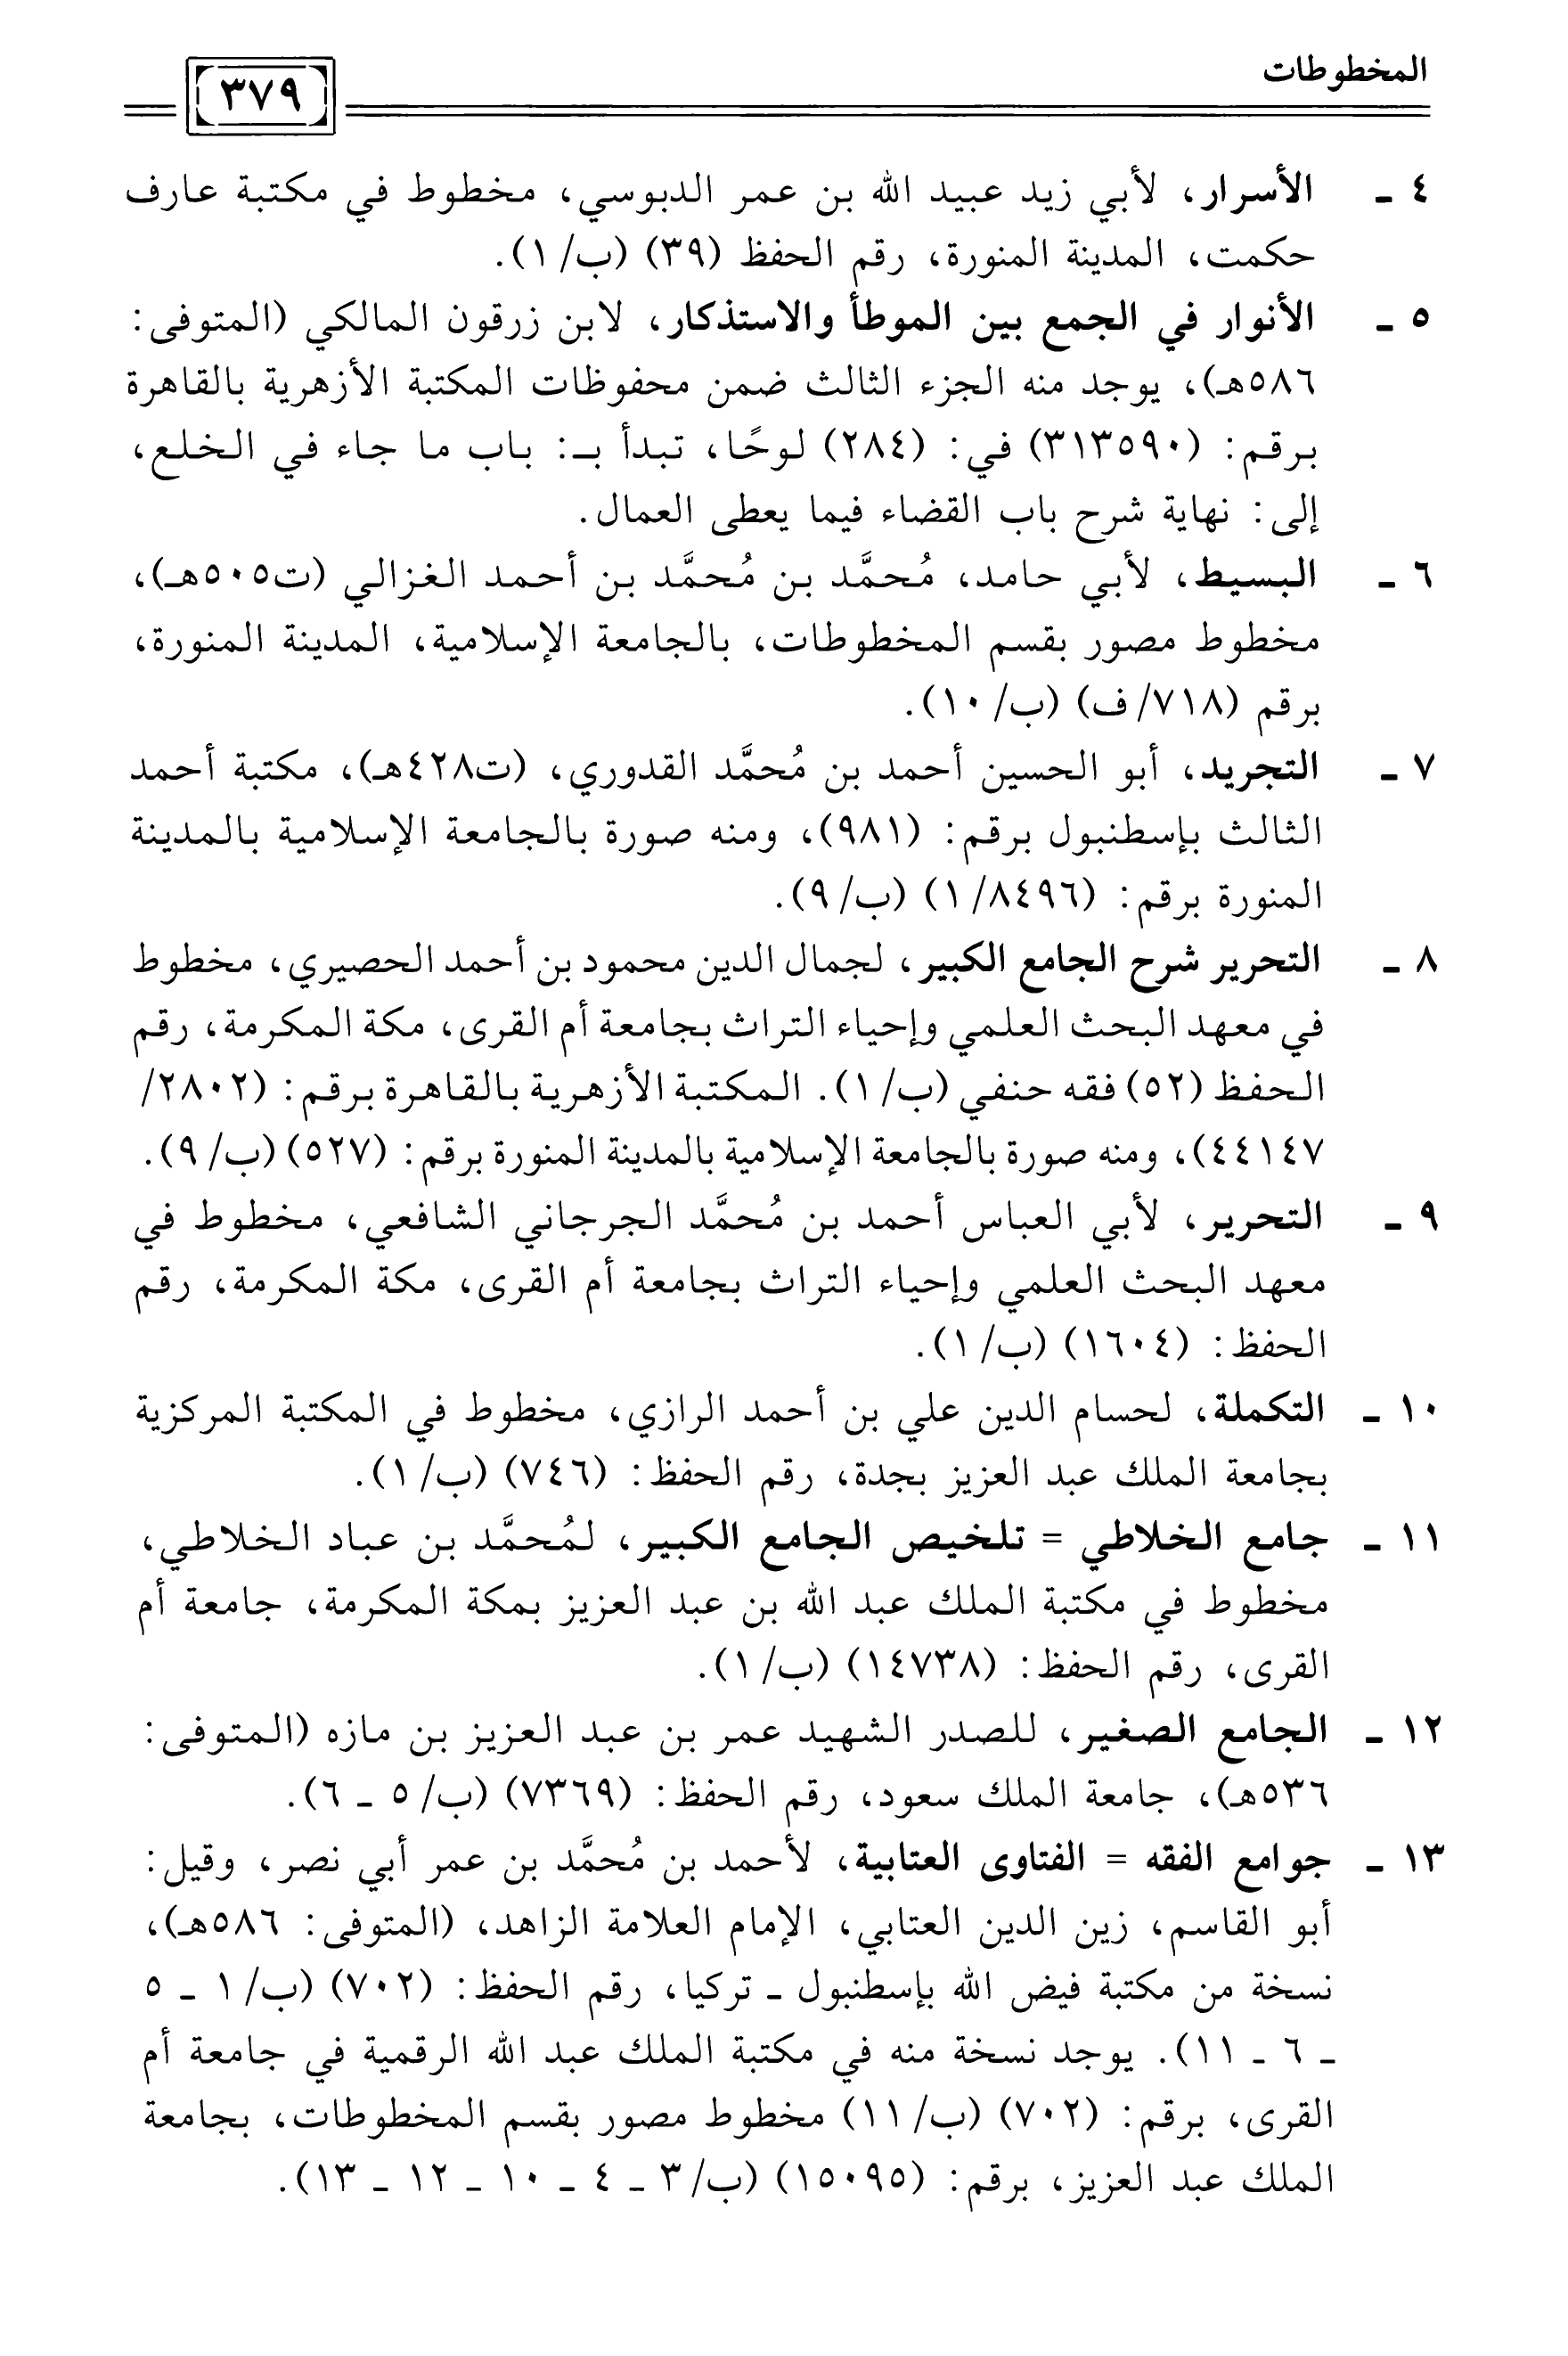 المخطوطات
٣٧٩
٤ ـ الأسرار، لأبي زيد عبيد الله بن عمر الدبوسي، مخطوط في مكتبة عارف
حكمت، المدينة المنورة، رقم الحفظ (٣٩) (ب/١).
٥ ـ الأنوار في الجمع بين الموطأ والاستذكار، لابن زرقون المالكي (المتوفى:
٥٨٦هـ)، يوجد منه الجزء الثالث ضمن محفوظات المكتبة الأزهرية بالقاهرة
برقم: (٣١٣٥٩٠) في: (٢٨٤) لوحًا، تبدأ بـ: باب ما جاء في الخلع،
إلى: نهاية شرح باب القضاء فيما يعطى العمال.
٦ ـ البسيط، لأبي حامد، مُحمَّد بن مُحمَّد بن أحمد الغزالي (ت٥٠٥هـ)،
مخطوط مصور بقسم المخطوطات، بالجامعة الإسلامية، المدينة المنورة،
برقم (٧١٨/ف) (ب/١٠).
٧ ـ التجريد، أبو الحسين أحمد بن مُحمَّد القدوري، (ت٤٢٨هـ)، مكتبة أحمد
الثالث بإسطنبول برقم: (٩٨١)، ومنه صورة بالجامعة الإسلامية بالمدينة
المنورة برقم: (١/٨٤٩٦) (ب/٩).
٨ ـ التحرير شرح الجامع الكبير، لجمال الدين محمود بن أحمد الحصيري، مخطوط
في معهد البحث العلمي وإحياء التراث بجامعة أم القرى، مكة المكرمة، رقم
الحفظ (٥٢) فقه حنفي (ب/١). المكتبة الأزهرية بالقاهرة برقم: (٢٨٠٢/
٤٤١٤٧)، ومنه صورة بالجامعة الإسلامية بالمدينة المنورة برقم: (٥٢٧) (ب/٩).
٩ ـ التحرير، لأبي العباس أحمد بن مُحمَّد الجرجاني الشافعي، مخطوط في
معهد البحث العلمي وإحياء التراث بجامعة أم القرى، مكة المكرمة، رقم
الحفظ: (١٦٠٤) (ب/١).
١٠ ـ التكملة، لحسام الدين علي بن أحمد الرازي، مخطوط في المكتبة المركزية
بجامعة الملك عبد العزيز بجدة، رقم الحفظ: (٧٤٦) (ب/١).
١١ ـ جامع الخلاطي = تلخيص الجامع الكبير، لمُحمَّد بن عباد الخلاطي،
مخطوط في مكتبة الملك عبد الله بن عبد العزيز بمكة المكرمة، جامعة أم
القرى، رقم الحفظ: (١٤٧٣٨) (ب/١).
١٢ ـ الجامع الصغير، للصدر الشهيد عمر بن عبد العزيز بن مازه (المتوفى:
٥٣٦هـ)، جامعة الملك سعود، رقم الحفظ: (٧٣٦٩) (ب/٥ ـ ٦).
١٣ ـ جوامع الفقه = الفتاوى العتابية، لأحمد بن مُحمَّد بن عمر أبي نصر، وقيل:
أبو القاسم، زين الدين العتابي، الإمام العلامة الزاهد، (المتوفى: ٥٨٦هـ)،
نسخة من مكتبة فيض الله بإسطنبول ـ تركيا، رقم الحفظ: (٧٠٢) (ب/١ ـ ٥
ـ ٦ ـ ١١). يوجد نسخة منه في مكتبة الملك عبد الله الرقمية في جامعة أم
القرى، برقم: (٧٠٢) (ب/١١) مخطوط مصور بقسم المخطوطات، بجامعة
الملك عبد العزيز، برقم: (١٥٠٩٥) (ب/٣ ـ ٤ ـ ١٠ ـ ١٢ ـ ١٣).